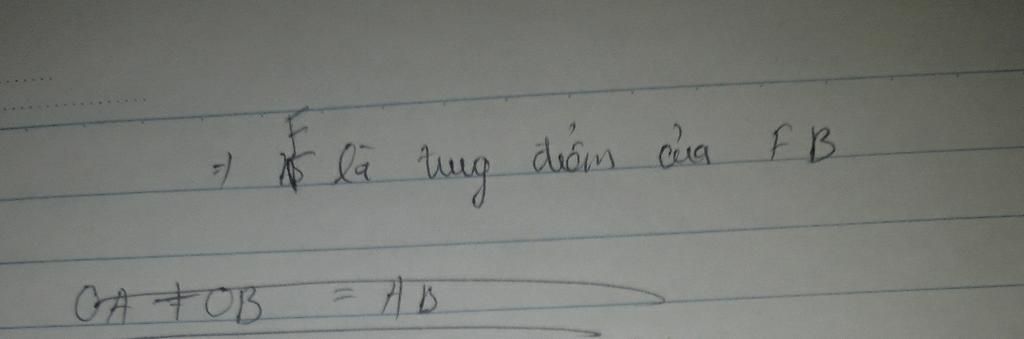 ⇒ F là trung điểm của FB
OA + OB = AB